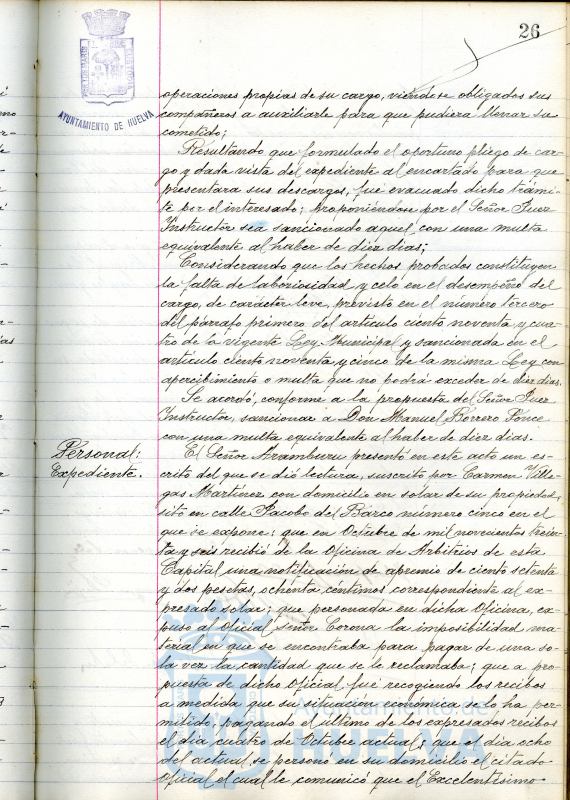 26
AYUNTAMIENTO DE HUELVA
operaciones propias de su cargo, viéndose obligados sus
compañeros a auxiliarle para que pudiera llenar su
cometido;
Resultando que formulado el oportuno pliego de car-
go y dada vista del expediente al encartado para que
presentara sus descargos, fué evacuado dicho trámi-
te por el interesado; proponiéndose por el Señor Juez
Instructor sea sancionado aquel con una multa
equivalente al haber de diez dias;
Considerando que los hechos probados constituyen
la falta de laboriosidad y celo en el desempeño del
cargo, de carácter leve, previsto en el número tercero
del párrafo primero del artículo ciento noventa y cua-
tro de la vigente Ley Municipal y sancionada en el
artículo ciento noventa y cinco de la misma Ley con
apercibimiento o multa que no podrá exceder de diez dias.
Se acordó, conforme a la propuesta del Señor Juez
Instructor, sancionar a Don Manuel Borrero Ponce
con una multa equivalente al haber de diez dias.
Personal:
Expediente.
El Señor Aramburu presentó en este acto un es-
crito del que se dió lectura, suscrito por Carmen Ville-
gas Martínez con domicilio en solar de su propiedad,
sito en calle Jacobo del Barco número cinco en el
que se expone: que en Octubre de mil novecientos trein-
ta y seis recibió de la Oficina de Arbitrios de esta
Capital una notificación de apremio de ciento setenta
y dos pesetas, ochenta céntimos correspondiente al ex-
presado solar; que personada en dicha Oficina, ex-
puso al Oficial Señor Corona la imposibilidad ma-
terial en que se encontraba para pagar de una so-
la vez la cantidad que se le reclamaba; que a pro-
puesta de dicho Oficial fué recogiendo los recibos
a medida que su situación económica se lo ha per-
mitido, pagando el último de los expresados recibos
el dia cuatro de Octubre actual; que el dia ocho
del actual se personó en su domicilio el citado
Oficial el cual le comunicó que el Excelentísimo
Ayuntamiento de
HUELVA